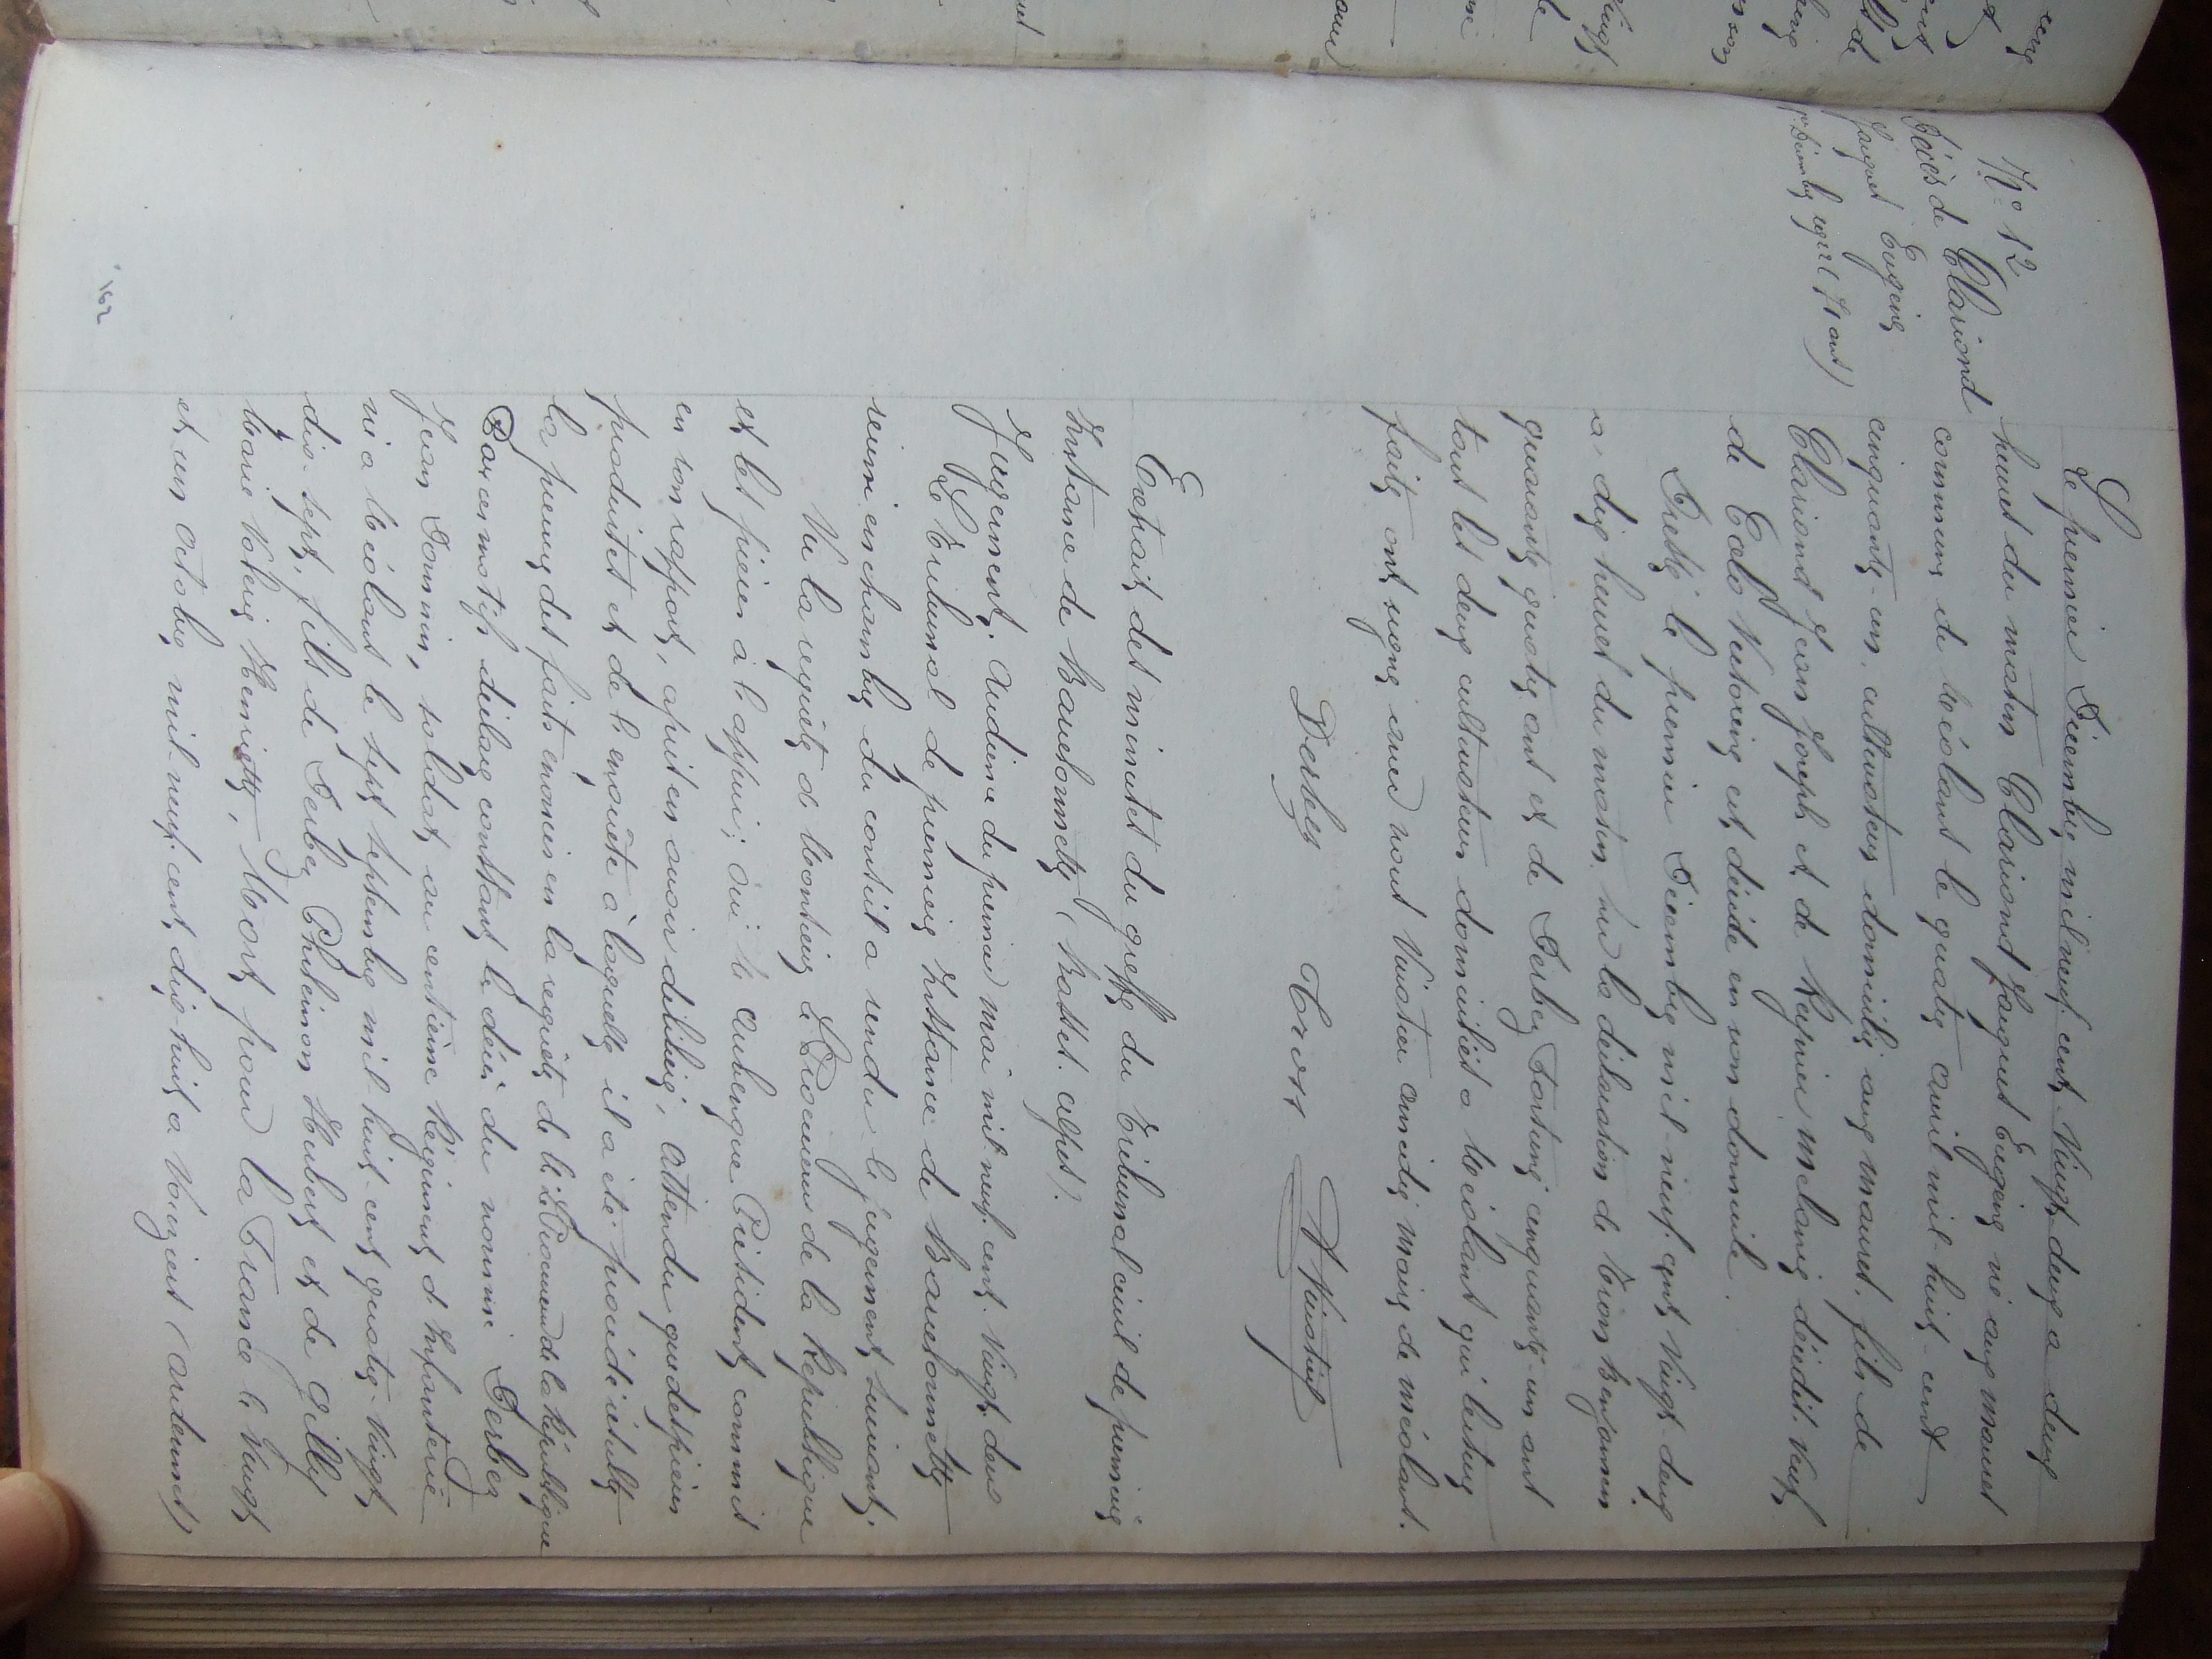 N° 12
Décès de Clariond
Jacques Eugène
1er Décembre 1922 (71 ans)
Le premier Décembre mil neuf cent Vingt deux a deux
heures du matin Clariond Jacques Eugène né aux maures
commune de Méolans le quatre avril mil huit cent
cinquante un, cultivateur domicilié aux maures, fils de
Clariond Jean Joseph et de Reynier mélanie décédés. Veuf
de Caló Victorine est décédé en son domicile.
Dressé le premier Décembre mil neuf cent Vingt deux
a dix heures du matin sur la déclaration de Tron Benjamin
quarante quatre ans et de Derbez Fortuné cinquante un ans
tous les deux cultivateurs domiciliés a Méolans qui lecture
faite ont signé avec nous Vivatier amédée maire de méolans.
Derbez Tron AVivatier
Extrait des minutes du greffe du Tribunal civil de première
Instance de Barcelonnette (Basses alpes).
Jugement. Audience du premier mai mil neuf cent Vingt deux
Le Tribunal de première Instance de Barcelonnette
réuni en chambre du conseil a rendu le jugement suivant.
Vu la requête de Monsieur le Procureur de la République
et les pièces à l'appui; oui M. Aubergue Président commis
en son rapport, après en avoir délibéré, attendu que des pièces
produites et de l'enquête à laquelle il a été procédé résulte
la preuve des faits énoncés en la requête de M. le Procureur de la République
Par ces motifs déclare constant le décès du nommé Derbez
Jean Damien, soldat au centième Régiment d'Infanterie
né a Méolans le sept septembre mil huit cent quatre Vingt
dix-sept, fils de Derbez Philémon Hubert et de Gilly
Marie Valérie Henriette, Mort pour la France le Vingt
et un octobre mil neuf cent dix huit a Vouziers (ardennes)
162